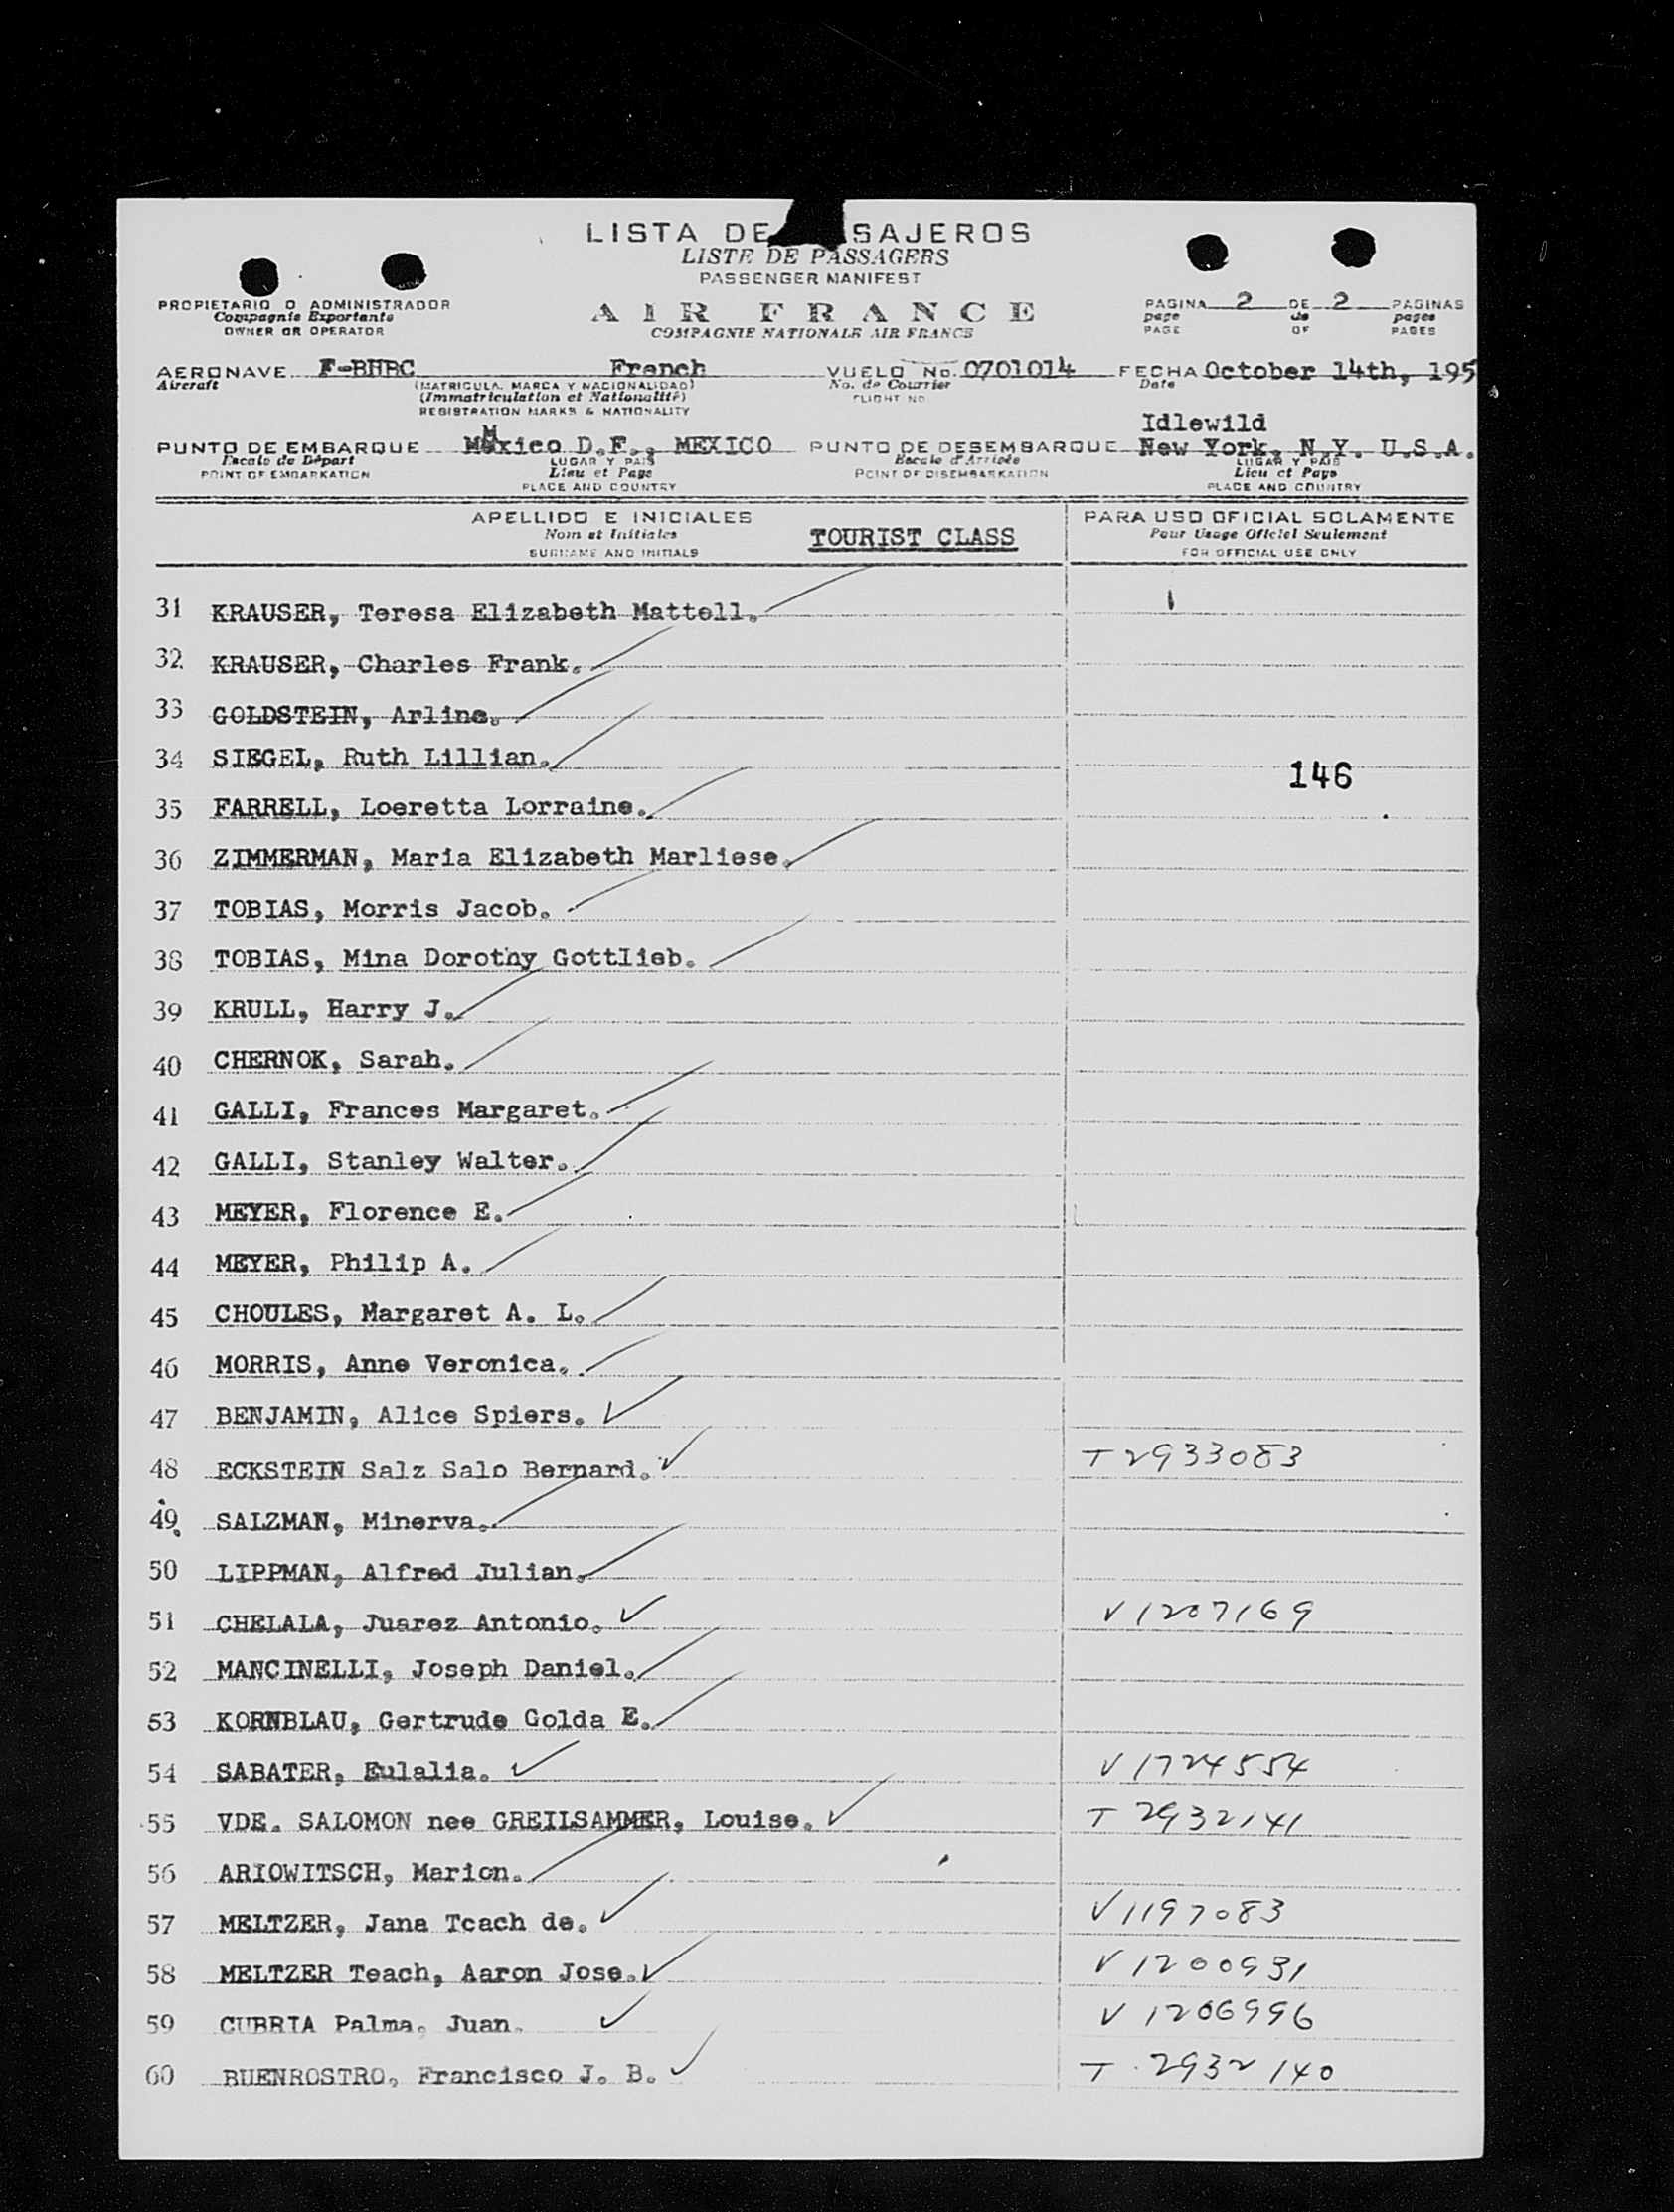 LISTA DE SAJEROS
LISTE DE PASSAGERS
PASSENGER MANIFEST
PROPIETARIO O ADMINISTRADOR
Compagnie Exportante
OWNER OR OPERATOR
AIR FRANCE
COMPAGNIE NATIONALE AIR FRANCE
PAGINA 2 DE 2 PAGINAS
page de pages
PAGE OF PAGES
AERONAVE F-BHBC French VUELO No. 0701014 FECHA October 14th, 195
Aircraft (MATRICULA, MARCA Y NACIONALIDAD) No. de Courrier Date
(Immatriculation et Nationalité) FLIGHT NO
REGISTRATION MARKS & NATIONALITY
Idlewild
PUNTO DE EMBARQUE México D.F., MEXICO PUNTO DE DESEMBARQUE New York, N.Y. U.S.A.
Escale de Départ LUGAR Y PAIS Escale d'Arrivée LUGAR Y PAIS
POINT OF EMBARKATION Lieu et Pays POINT OF DISEMBARKATION Lieu et Pays
PLACE AND COUNTRY PLACE AND COUNTRY
APELLIDO E INICIALES PARA USO OFICIAL SOLAMENTE
Nom et Initiales TOURIST CLASS Pour Usage Oficiel Seulement
SURNAME AND INITIALS FOR OFFICIAL USE ONLY
31 KRAUSER, Teresa Elizabeth Mattell.
32 KRAUSER, Charles Frank.
33 GOLDSTEIN, Arline.
34 SIEGEL, Ruth Lillian.
146
35 FARRELL, Loeretta Lorraine.
36 ZIMMERMAN, Maria Elizabeth Marliese.
37 TOBIAS, Morris Jacob.
38 TOBIAS, Mina Dorothy Gottlieb.
39 KRULL, Harry J.
40 CHERNOK, Sarah.
41 GALLI, Frances Margaret.
42 GALLI, Stanley Walter.
43 MEYER, Florence E.
44 MEYER, Philip A.
45 CHOULES, Margaret A. L.
46 MORRIS, Anne Veronica.
47 BENJAMIN, Alice Spiers.
48 ECKSTEIN Salz Salo Bernard. T 2933083
49 SALZMAN, Minerva.
50 LIPPMAN, Alfred Julian.
51 CHELALA, Juarez Antonio. V 1207169
52 MANCINELLI, Joseph Daniel.
53 KORNBLAU, Gertrude Golda E.
54 SABATER, Eulalia. V 1724554
55 VDE. SALOMON nee GREILSAMMER, Louise. T 2932141
56 ARIOWITSCH, Marion.
57 MELTZER, Jana Tcach de. V 1197083
58 MELTZER Teach, Aaron Jose. V 1200931
59 CUBRIA Palma, Juan. V 1206996
60 BUENROSTRO, Francisco J. B. T 2932140